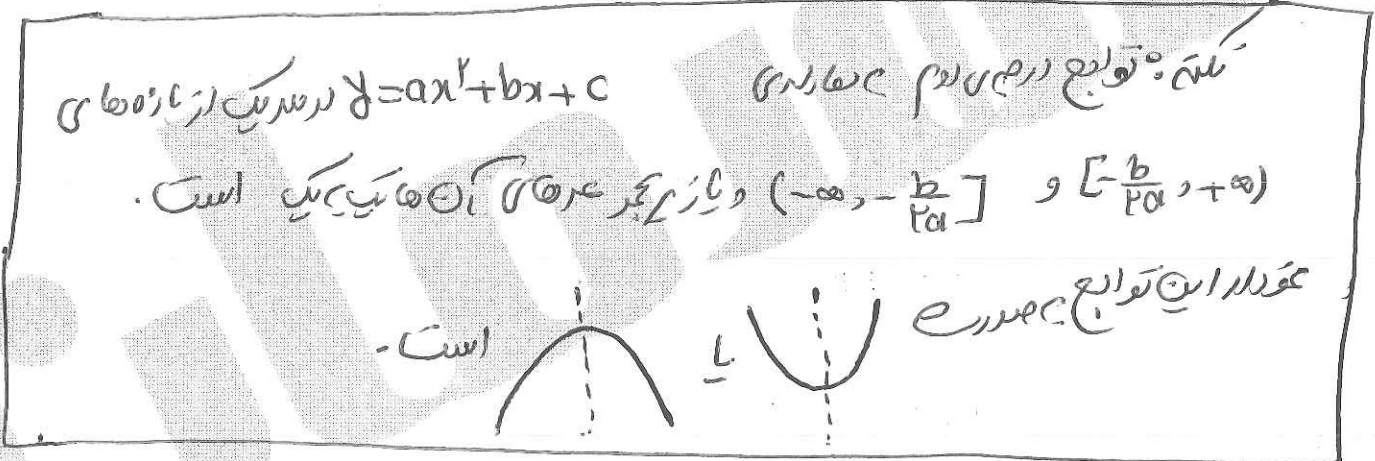 نکته: توابع درجه‌ی دوم به معادله‌ی y=ax²+bx+c در هر یک از بازه‌های
[-b/۲a, +∞) و (-∞, -b/۲a] و یا زیرمجموعه‌های آن‌ها یک به یک است.
نمودار این توابع به صورت یا است.